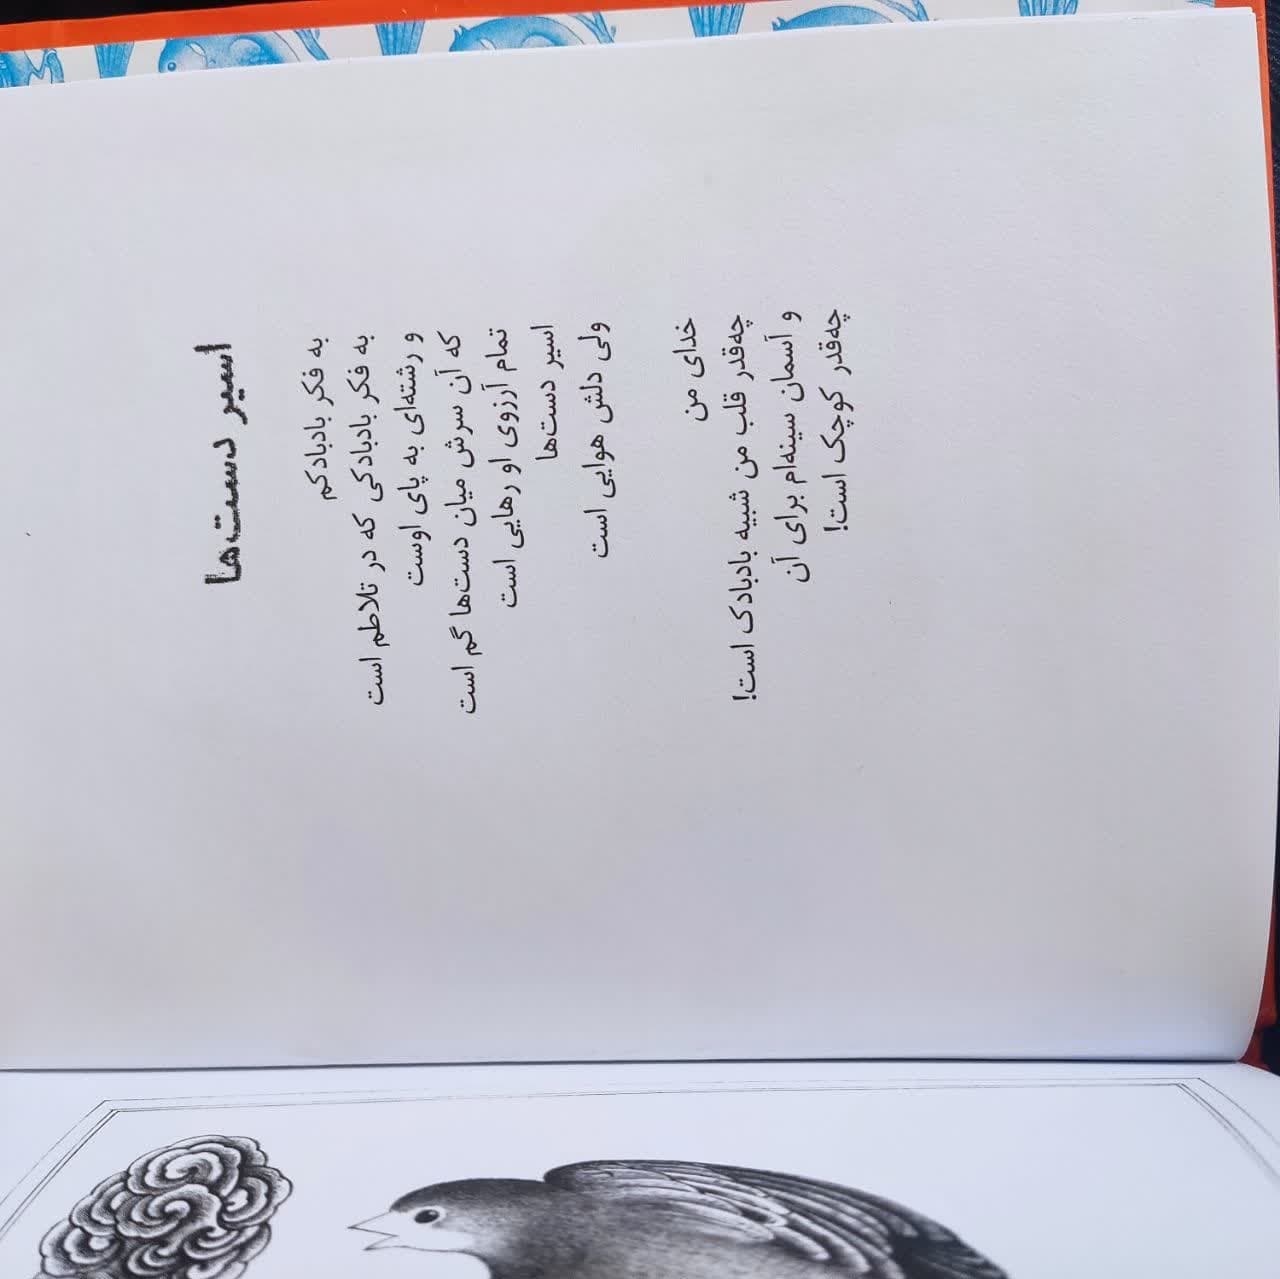 اسیر دست‌ها
به فکر بادبادکم
به فکر بادبادکی که در تلاطم است
و رشته‌ای به پای اوست
که آن سرش میان دست‌ها گم است
تمام آرزوی او رهایی است
اسیر دست‌ها
ولی دلش هوایی است
خدای من
چه‌قدر قلب من شبیه بادبادک است!
و آسمان سینه‌ام برای آن
چه‌قدر کوچک است!